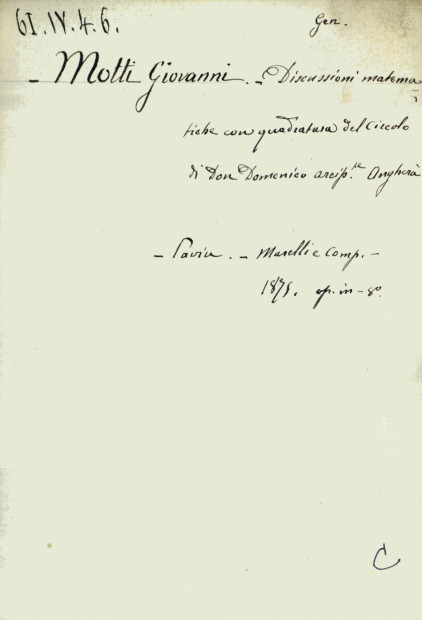 61.IV.4.6.
Gen.
- Motti Giovanni. - Discussioni matema
tiche con quadratura del Circolo
di Don Domenico arcip.te Angherà
- Pavia. - Marelli e Comp. -
1875. op. in-8º.
C